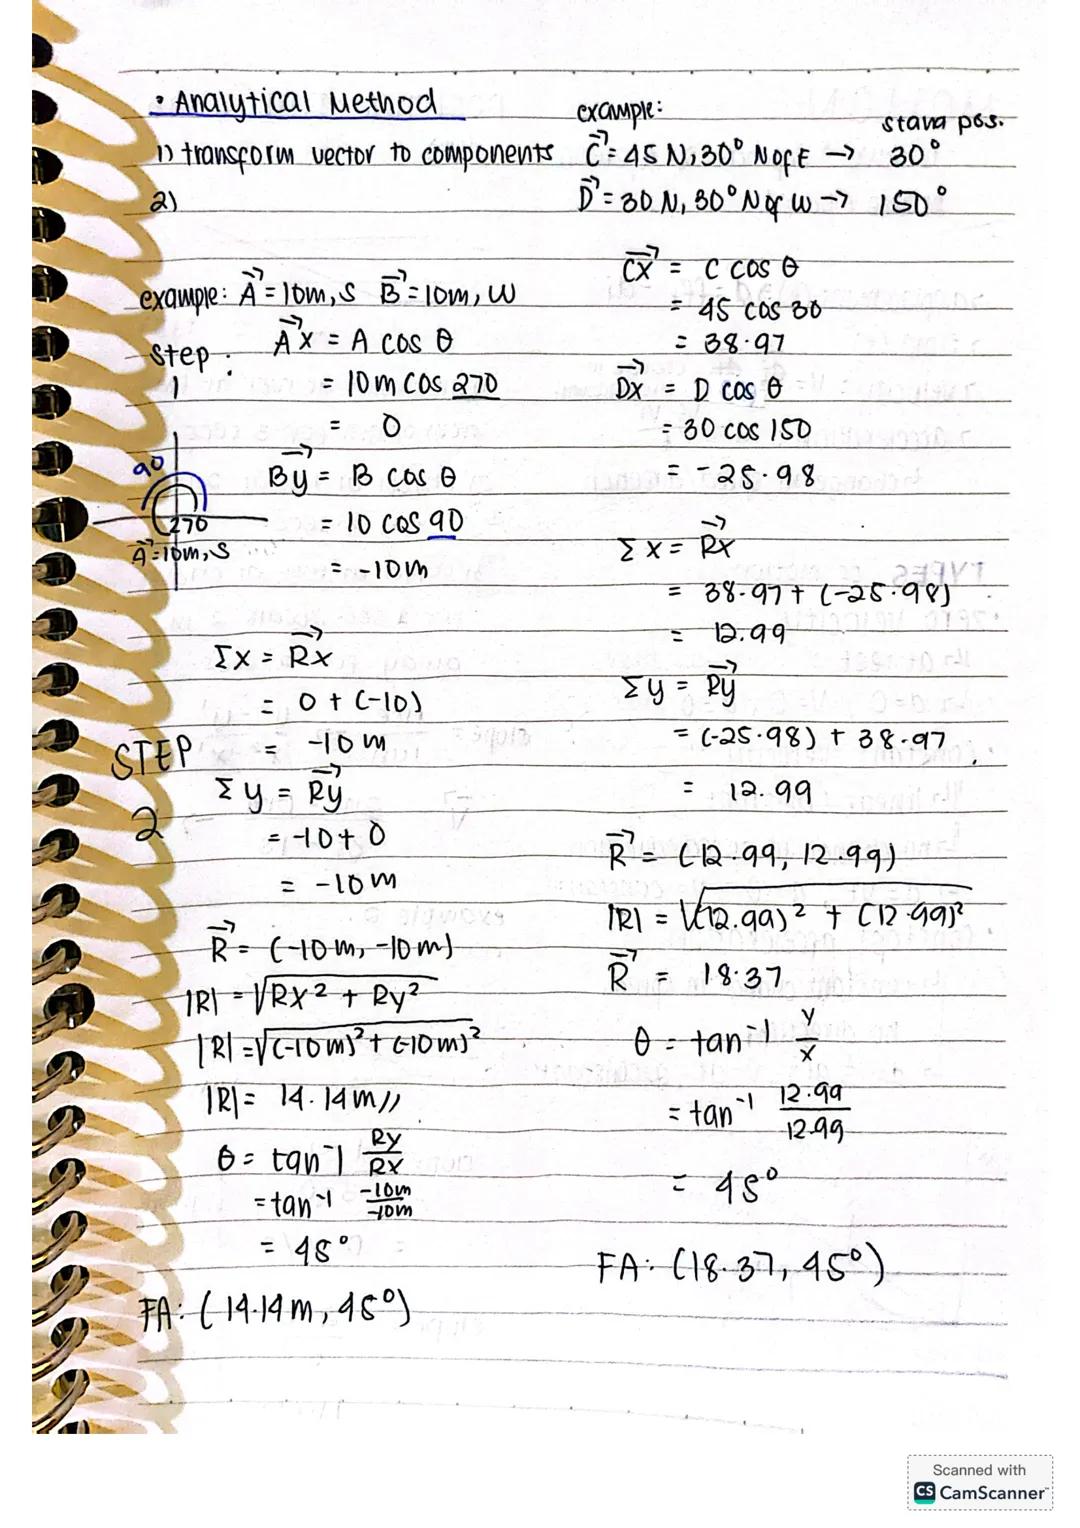 • Analytical Method
1) transform vector to components
2)
example: A⃗ = 10m, S B⃗ = 10m, W
Step : 1
A⃗x = A cos θ
= 10m cos 270
= 0
B⃗y = B cos θ
= 10 cos 90
= -10m
90
270
A⃗=10m, S
Σx = R⃗x
= 0 + (-10)
= -10 m
STEP 2
Σy = R⃗y
= -10 + 0
= -10 m
R⃗ = (-10m, -10m)
|R| = √Rx² + Ry²
|R| = √(-10m)² + (-10m)²
|R| = 14.14m//
θ = tan⁻¹ Ry/Rx
= tan⁻¹ -10m/-10m
= 45°
FA: (14.14m, 45°)
example:
stand pos.
C⃗ = 45 N, 30° N of E → 30°
D⃗ = 30 N, 30° N of W → 150°
C⃗x = C cos θ
= 45 cos 30
= 38.97
D⃗x = D cos θ
= 30 cos 150
= -25.98
Σx = R⃗x
= 38.97 + (-25.98)
= 12.99
Σy = R⃗y
= (-25.98) + 38.97
= 12.99
R⃗ = (12.99, 12.99)
|R| = √(12.99)² + (12.99)²
R⃗ = 18.37
θ = tan⁻¹ y/x
= tan⁻¹ 12.99/12.99
= 45°
FA: (18.37, 45°)
Scanned with
CS CamScanner